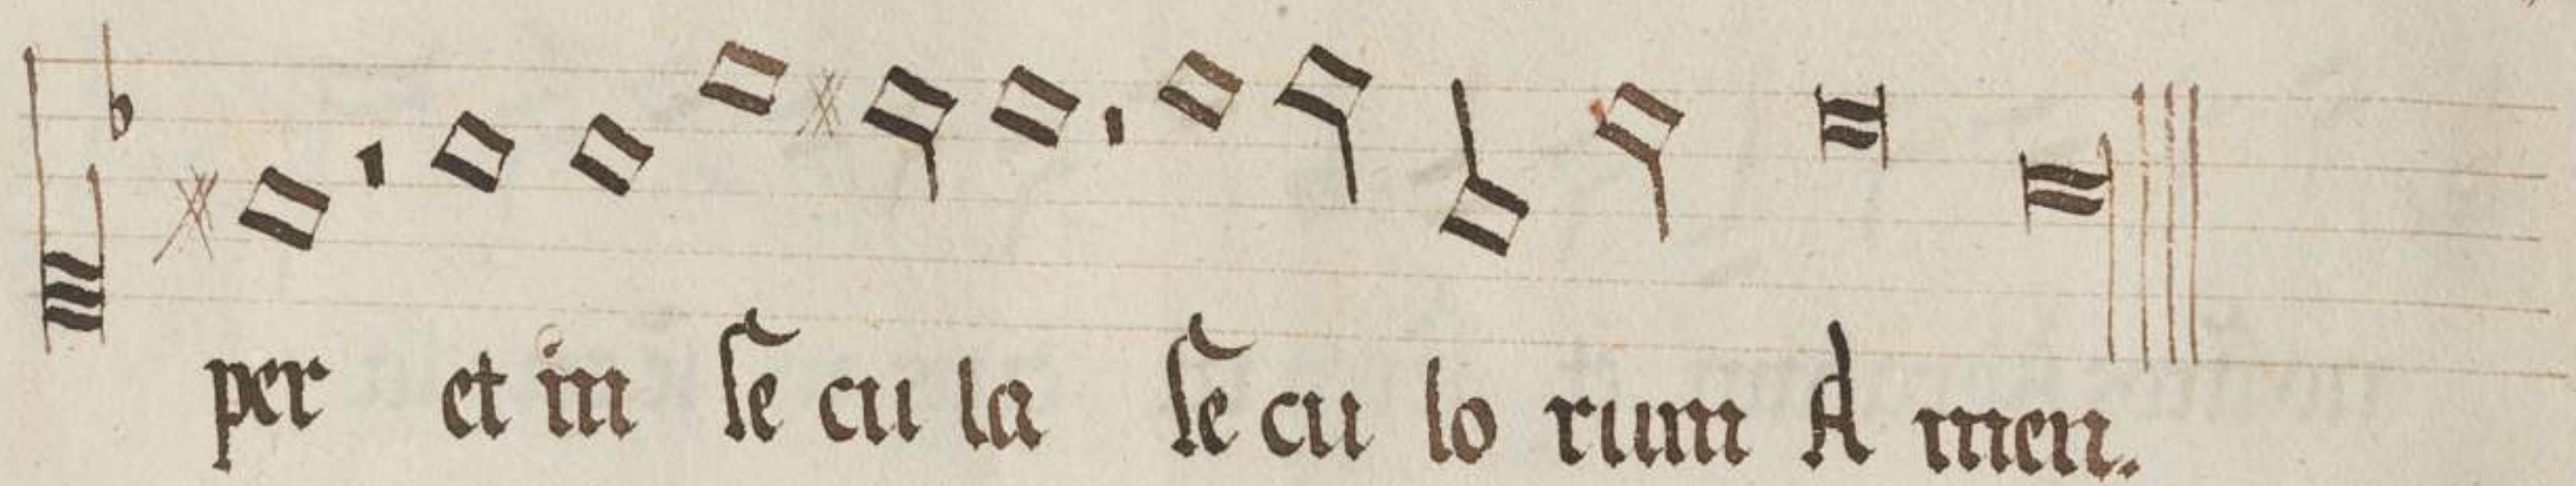 per et in se cu la se cu lo rum A men.